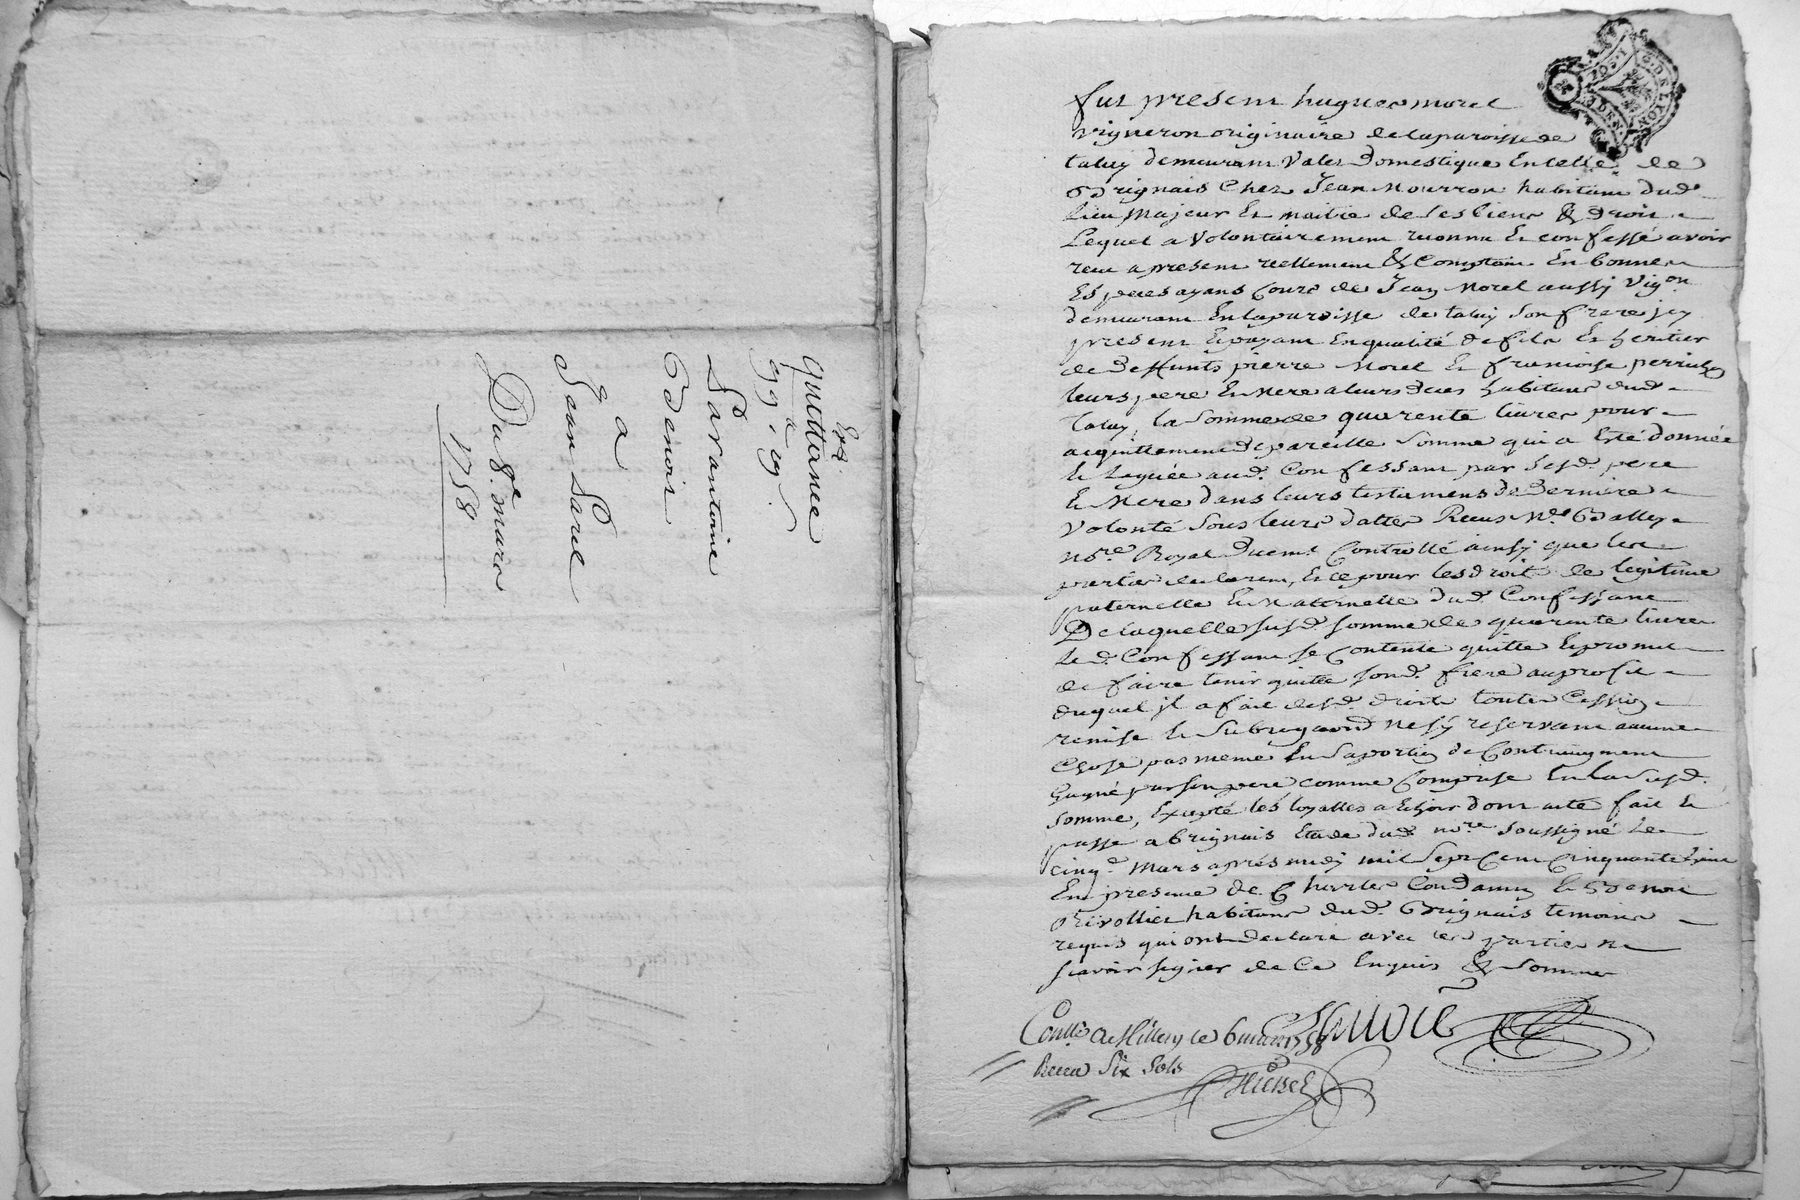 Exp
quittance
99 a 199.
Sarantoine
Benoit
a
Jean Sarel
Du 8e. mars
1758
G. DE LYON
fut present hugues morel
vigneron originaire de laparoisse de
taluy demeurant Valet Domestique En celle de
Brignais Chez Jean Mourron habitant dud.
lieu Majeur Et maitre de ses biens & droits
Lequel a Volontairement reconnu Et confessé avoir
receu a present reellement & Comptant En bonnes
Especes ayans Cours de Jean Morel aussy Vigon.
demeurant En laparoisse de taluy son frere jcy
present Et payant En qualité de fils Et heritier
de deffunts pierre Morel Et francoise
leurs pere Et Mere a leurs deces habitans dud.
Taluy, la somme de quarente livres pour
acquittement de pareille somme qui a Esté donnée
Et Leguée aud. Confessant par sesd. pere
Et Mere dans leurs testamens De Derniere
Volonté sous leurs dattes Receus Me.
nore. Royal Duemt. Controllé ainsy que les
parties declarent, Et ce pour les droits de legitime
paternelle Et Maternelle dud. Confessant
De laquelle susd. somme de quarente livres
Led. Confessant se Contente quitte Et promet
de faire tenir quitte sond. frere au profit
duquel jl a fait desd. droits toutes Cession
remise Et subrogation Ne sy reservant aucune
Chose pas meme En la portion de
gagné par son pere comme Comprise En la susd.
somme, Excepté les loyalles a Echoir dont acte fait Et
passé a Brignais Etude dud. nore. soussigné Le
cinq. Mars aprés midy mil sept Cent Cinquante huit
En presence de Charles Condamin Et Benoit
Rivollier habitans dud. Brignais temoins
requis qui ont declaré avec les parties ne
scavoir signer de Ce Enquis & sommés
Conllé. a Millery le 6 mars 1758
Receu Six sols